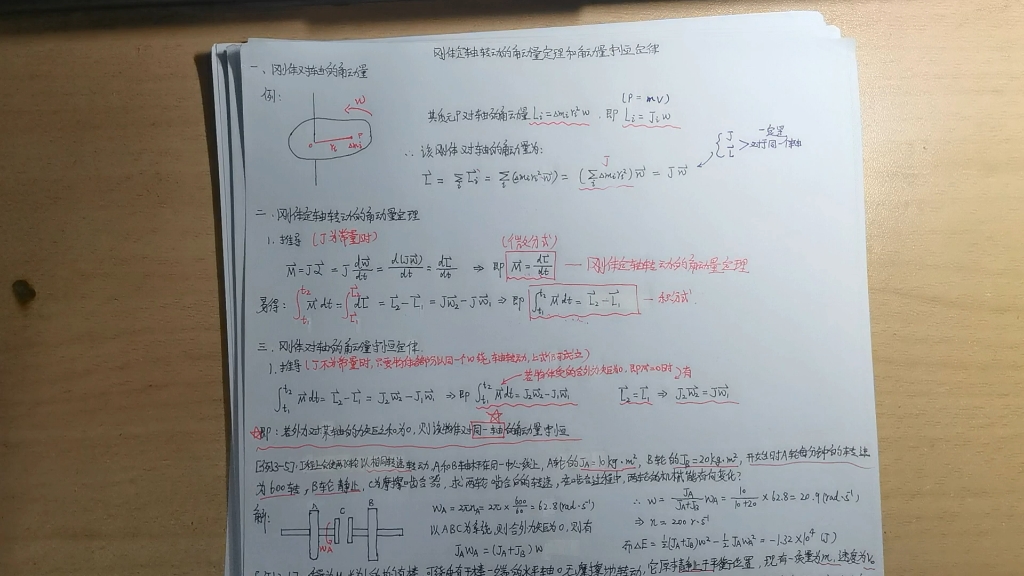 刚体定轴转动的角动量定理和角动量守恒定律
一、刚体对轴的角动量
例:
ω
O
r_i
P
Δm_i
(P = mv)
其质元P对轴的角动量 L_i = Δm_i r_i² ω . 即 L_i = J_i ω
∴ 该刚体对轴的角动量为:
L⃗ = Σ_i L⃗_i = Σ_i (Δm_i r_i² ω⃗) = (Σ_i Δm_i r_i²) ω⃗ = J ω⃗
J
{ J L > 一定是对于同一个轴
二、刚体定轴转动的角动量定理
1. 推导 (J为常量时)
(微分式)
M⃗ = J α⃗ = J dω⃗/dt = d(Jω⃗)/dt = dL⃗/dt ⇒ 即 M⃗ = dL⃗/dt — 刚体定轴转动的角动量定理
易得: ∫_{t₁}^{t₂} M⃗ dt = ∫_{L⃗₁}^{L⃗₂} dL⃗ = L⃗₂ - L⃗₁ = Jω⃗₂ - Jω⃗₁ ⇒ 即 ∫_{t₁}^{t₂} M⃗ dt = L⃗₂ - L⃗₁ — 积分式
三、刚体对轴的角动量守恒定律
1. 推导 (J不为常量时, 只要物体各部分以同一个ω绕轴转动, 上式仍成立)
若物体受的合外力矩为0, 即M=0时 有
∫_{t₁}^{t₂} M⃗ dt = L⃗₂ - L⃗₁ = J₂ω⃗₂ - J₁ω⃗₁ ⇒ 即 ∫_{t₁}^{t₂} M⃗ dt = J₂ω⃗₂ - J₁ω⃗₁ L⃗₂ = L⃗₁ ⇒ J₂ω⃗₂ = J₁ω⃗₁
☆即: 若外力对某轴的力矩之和为0, 则该物体对同一轴的角动量守恒
转动, A和B轴杆在同一中心线上, A轮的J_A = 10 kg·m², B轮的J_B = 20 kg·m², 开始时A轮每分钟的转速
为600转, B轮静止, C为摩擦啮合器, 求两轮啮合后的转速, 在啮合过程中, 两轮的机械能有何变化?
解:
A
C
B
ω_A
ω_A = 2πn_A = 2π × 600/60 = 62.8 (rad·s⁻¹)
以ABC为系统, 则合外力矩为0, 则有
J_A ω_A = (J_A + J_B) ω
∴ ω = J_A/(J_A+J_B) ω_A = 10/(10+20) × 62.8 = 20.9 (rad·s⁻¹)
⇒ n = 200 r·s⁻¹
而 ΔE = ½(J_A+J_B)ω² - ½J_Aω_A² = -1.32×10⁴ (J)
无摩擦地转动, 它原先静止于平衡位置, 现有一质量为m, 速度为v₀